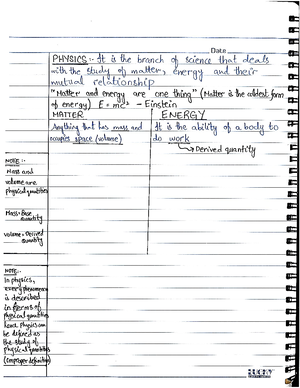 Date
PHYSICS:- It is the branch of science that deals
with the study of matter, energy and their
mutual relationship
"Matter and energy are one thing" (Matter is the coldest form
of energy) E = mc² - Einstein
MATTER
Anything that has mass and
occupies space (volume)
ENERGY
It is the ability of a body to
do work
Derived quantity
NOTE:-
Mass and
volume are
Physical quantities
Mass = Base
quantity
volume = Derived
quantity
NOTE:-
In physics,
every phenomenon
is described
in terms of
physical quantities
hence Physics can
be defined as
the study of
Physical quantities
(improper definition)